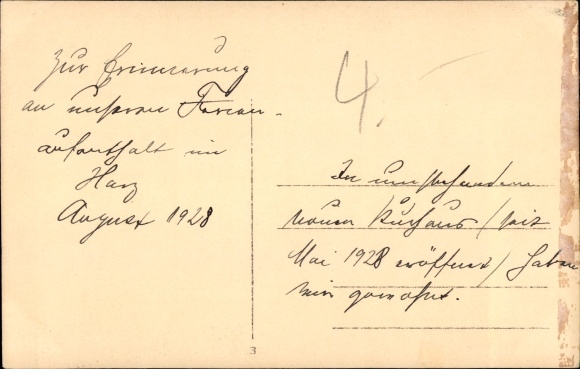 Zur Erinnerung
an unseren Ferien-
aufenthalt im
Harz
August 1928
4.-
In umstehendem
neuen Kurhaus / seit
Mai 1928 eröffnet / haben
wir gewohnt.
3